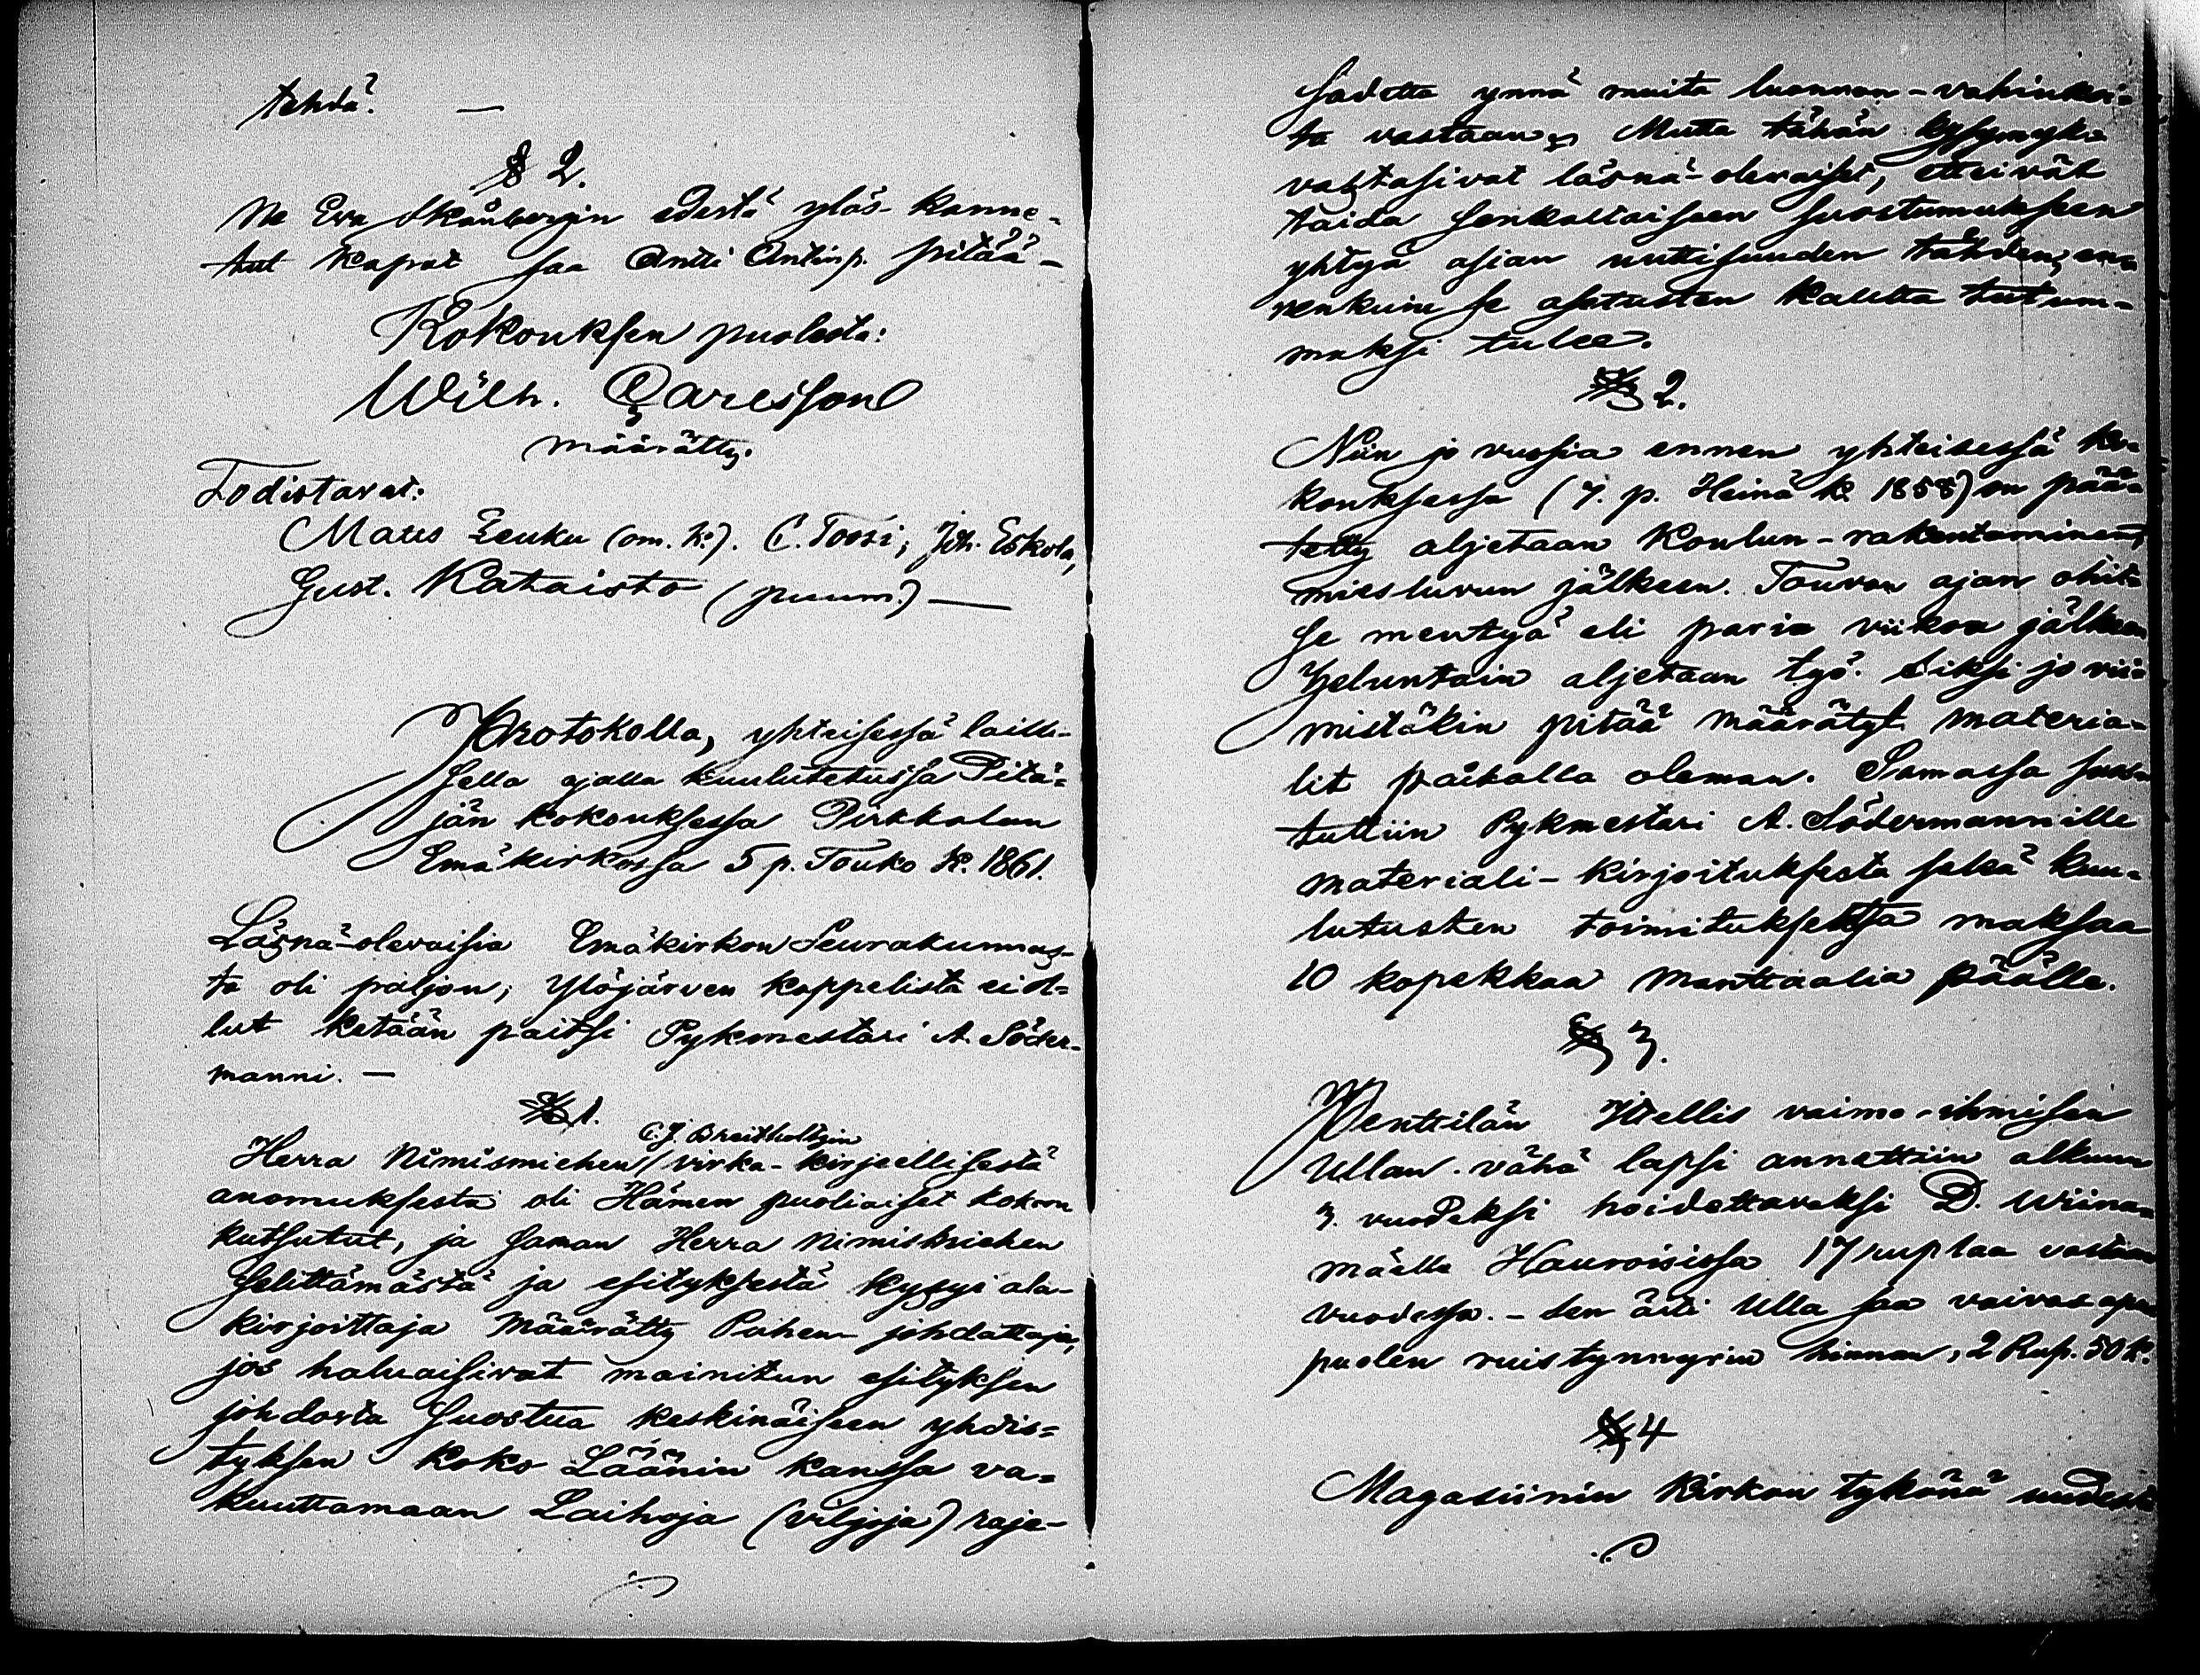 tehdä. —
§ 2.
Ne Eva Skånbergin edestä ylös-kanne-
tut Kapat saa Antti Antinp. pitää —
Kokouksen puolesta:
Wilh. Caresson
määrätty.
Todistavat:
Matts Leuku (om. k.). C. Toosi; Joh. Eskola,
Gust. Kataisto (puum.) —
Protokolla, yhteisessä lailli-
sella ajalla kuulutetussa Pitä-
jän kokouksessa Pirkkalan
Emäkirkossa 5 p. Touko k. 1861.
Läsnä-olevaisia Emäkirkon Seurakunnas-
ta oli paljon; Ylöjärven kappelista ei ol-
lut ketään paitsi Pykmestari A. Söder-
manni. —
§ 1.
C. J. Breitholtzin
Herra Nimismiehen / virka-kirjeellisestä
anomuksesta oli Hämen puoliaiset kokoon
kutsutut, ja saman Herra Nimismiehen
selittämästä ja esityksestä kysyi ala-
kirjoittaja määrätty Puhen-johdattaja,
jos haluaisivat mainitun esityksen
johdosta suostua keskinäiseen yhdis-
tyksen koko Läänin kanssa va-
kuuttamaan Laihoja (viljoja) raje-
sadetta ynnä muita luonnon-vahinkoi-
ta vastaan; Mutta tähän kysymyks.
vastasivat läsnä-olevaiset, etteivät
taida senkaltaiseen suostumukseen
yhtyä asian uutisuuden tähden, en-
nenkuin se asetusten kautta tutum-
maksi tulee.
§ 2.
Niin jo vuosia ennen yhteisessä ko-
kouksessa (7. p. Heinä k. 1858) on pää-
tetty aljetaan Koulun-rakentaminen,
miesluvun jälkeen. Touvon ajan ohit-
se mentyä eli paria viikoa jälkeen
Heluntain aljetaan työ. Siksi jo vii-
mistäkin pitää määrätyt materia-
lit paikalla oleman. Samassa suos-
tuttiin Pykmestari A. Södermannille
materiali-kirjoituksesta sekä kuu-
lutusten toimituksesta maksaa
10 kopekkaa manttaalia päälle.
§ 3.
Penttilän Itsellis vaimo-ihmisen
Ullan vähä lapsi annettiin alkuun
3. vuodeksi hoidettavaksi D. Wiina-
mäelle Hauroisissa 17 ruplaa vastaan
vuodessa. – Sen äiti Ulla saa vaivas apu
puolen ruistynnyrin hinnan, 2 Rup. 50 k.
§ 4
Magasiinin Kirkon tykönä uudesta